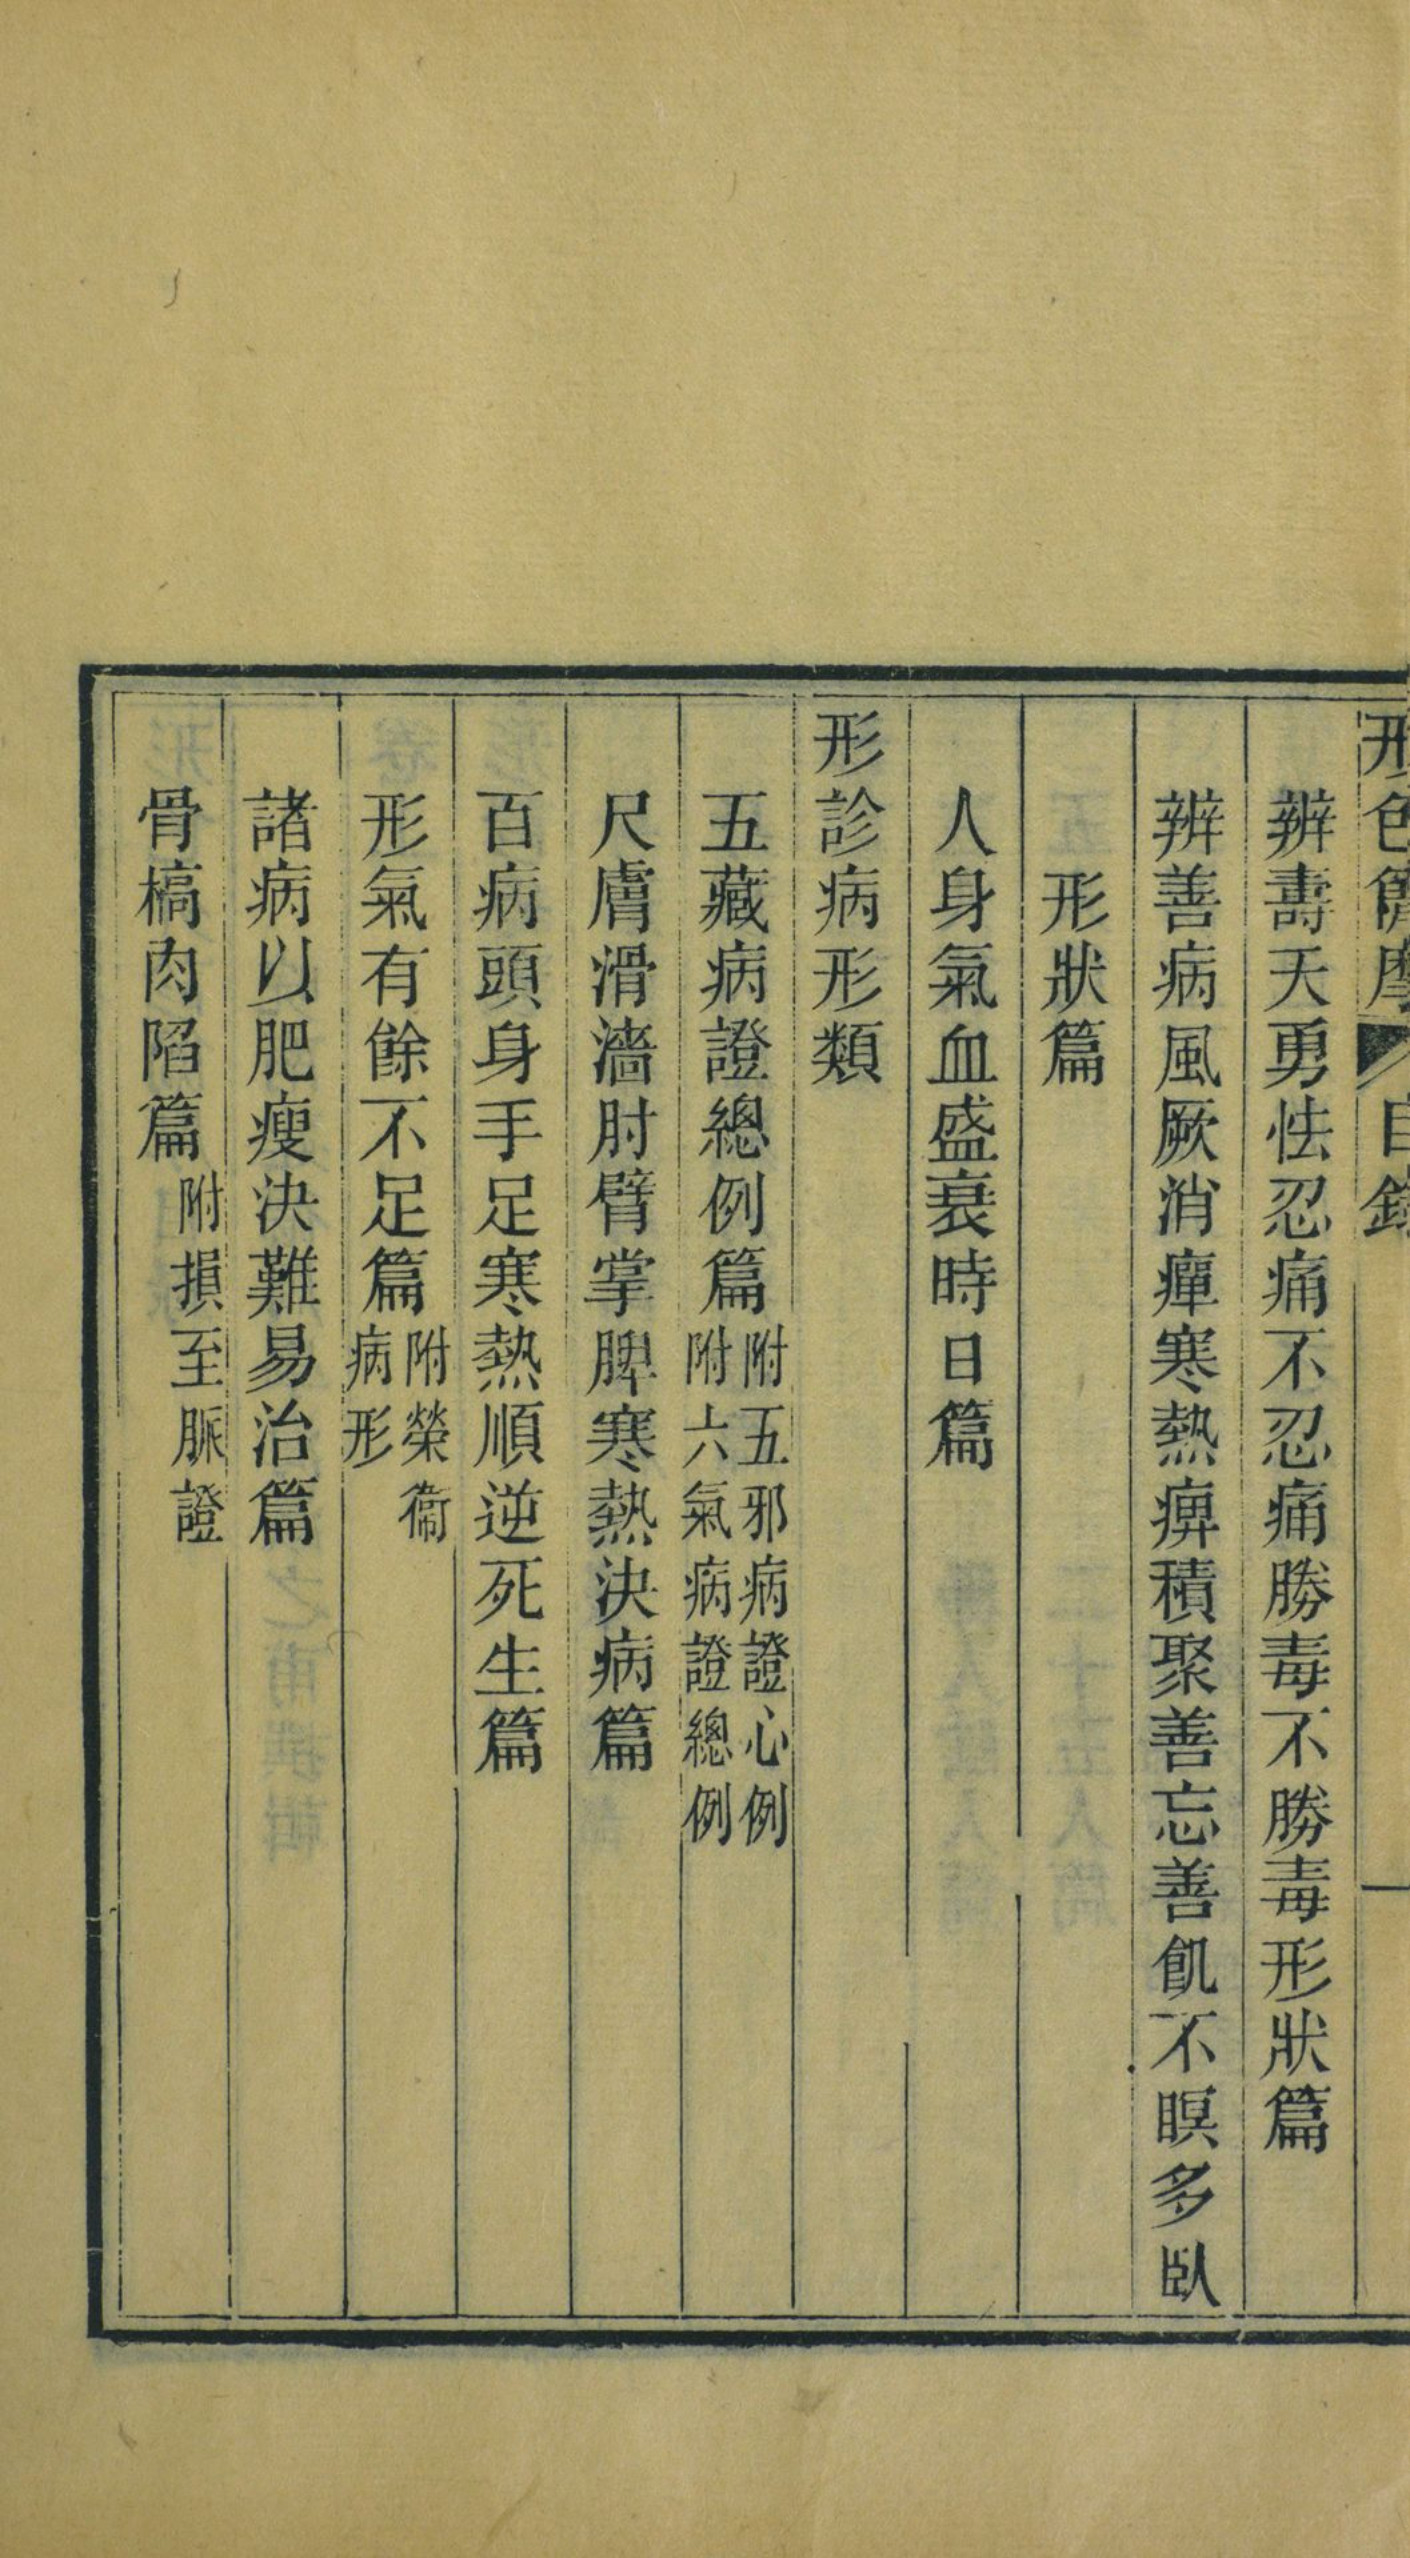 形色簡摩 目錄 一
辨壽夭勇怯忍痛不忍痛勝毒不勝毒形狀篇
辨善病風厥消癉寒熱痹積聚善忘善飢不瞑多臥
形狀篇
人身氣血盛衰時日篇
形診病形類
五藏病證總例篇 附五邪病證心例 附六氣病證總例
尺膚滑濇肘臂掌脾寒熱決病篇
百病頭身手足寒熱順逆死生篇
形氣有餘不足篇 附榮衞病形
諸病以肥瘦決難易治篇
骨槁肉陷篇 附損至脈證